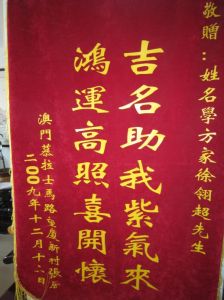 敬贈：姓名學方家徐翎超先生
吉名助我紫氣來
鴻運高照喜開懷
澳門慕拉士馬路
廈新村張居
二〇〇九年十二月十六日